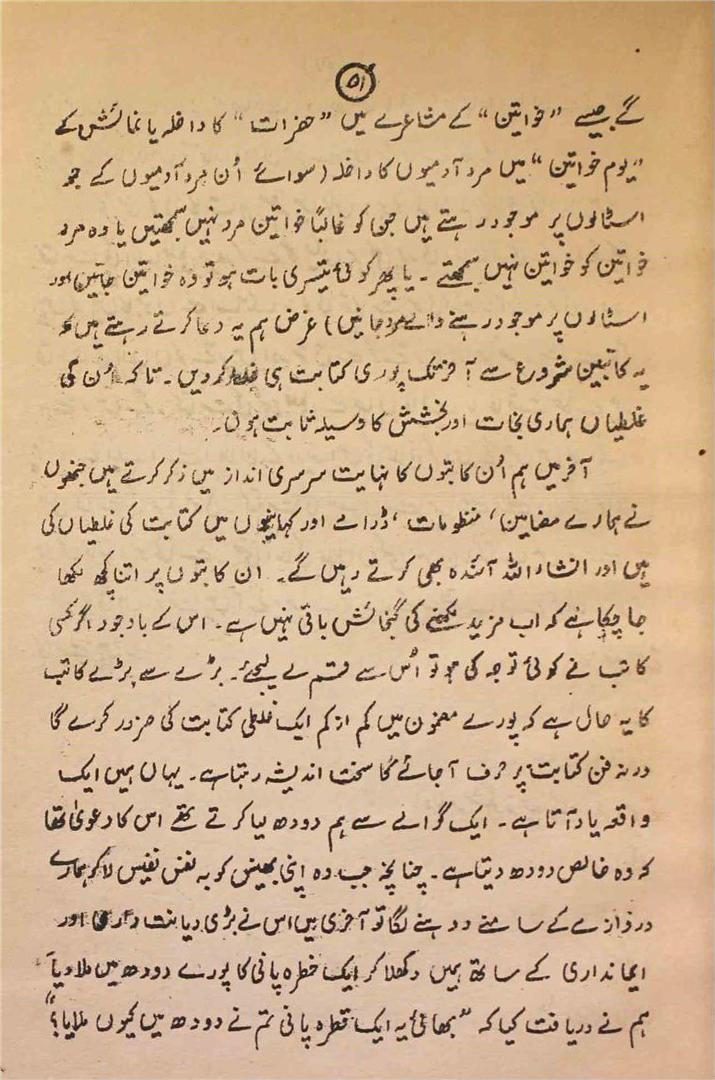 ۵۱
گے جیسے ”خواتین“ کے مشاعرے میں ”حضرات“ کا داخلہ یا نمائش کے
”یوم خواتین“ میں مرد آدمیوں کا داخلہ (سوائے اُن مرد آدمیوں کے جو
اسٹالوں پر موجود رہتے ہیں جن کو غالباً خواتین مرد نہیں سمجھتیں یا وہ مرد
خواتین کو خواتین نہیں سمجھتے ۔ یا پھر کوئی تیسری بات ہو تو وہ خواتین جانیں اور
اسٹالوں پر موجود رہنے والے مرد جانیں) غرض ہم یہ دعا کرتے رہتے ہیں کہ
یہ کاتبین شروع سے آخر تک پوری کتابت ہی غلط کردیں۔ تاکہ اُن کی
غلطیاں ہماری نجات اور بخشش کا وسیلہ ثابت ہوں۔
آخر میں ہم اُن کاتبوں کا نہایت سرسری انداز میں ذکر کرتے ہیں جنھوں
نے ہمارے مضامین، منظومات، ڈرامے اور کہانیوں میں کتابت کی غلطیاں کی
ہیں اور انشاء اللہ آئندہ بھی کرتے رہیں گے۔ ان کاتبوں پر اتنا کچھ لکھا
جا چکا ہے کہ اب مزید لکھنے کی گنجائش باقی نہیں ہے۔ اس کے باوجود اگر کسی
کاتب نے کوئی توجہ کی ہو تو اُس سے قسم لے لیجئے۔ بڑے سے بڑے کاتب
کا یہ حال ہے کہ پورے مضمون میں کم از کم ایک غلطی کتابت کی ضرور کرے گا
ورنہ فن کتابت پر حرف آجائے گا سخت اندیشہ رہتا ہے۔ یہاں ہمیں ایک
واقعہ یاد آتا ہے۔ ایک گوالے سے ہم دودھ لیا کرتے تھے اس کا دعویٰ تھا
کہ وہ خالص دودھ دیتا ہے۔ چنانچہ جب وہ اپنی بھینس کو بہ نفس نفیس لاکر ہمارے
دروازے کے سامنے دوہنے لگا تو آخر میں اس نے بڑی دیانت داری اور
ایمانداری کے ساتھ ہمیں دکھلا کر ایک خطرہ پانی کا پورے دودھ میں ملا دیا۔
ہم نے دریافت کیا کہ ”بھائی یہ ایک قطرہ پانی تم نے دودھ میں کیوں ملایا؟“